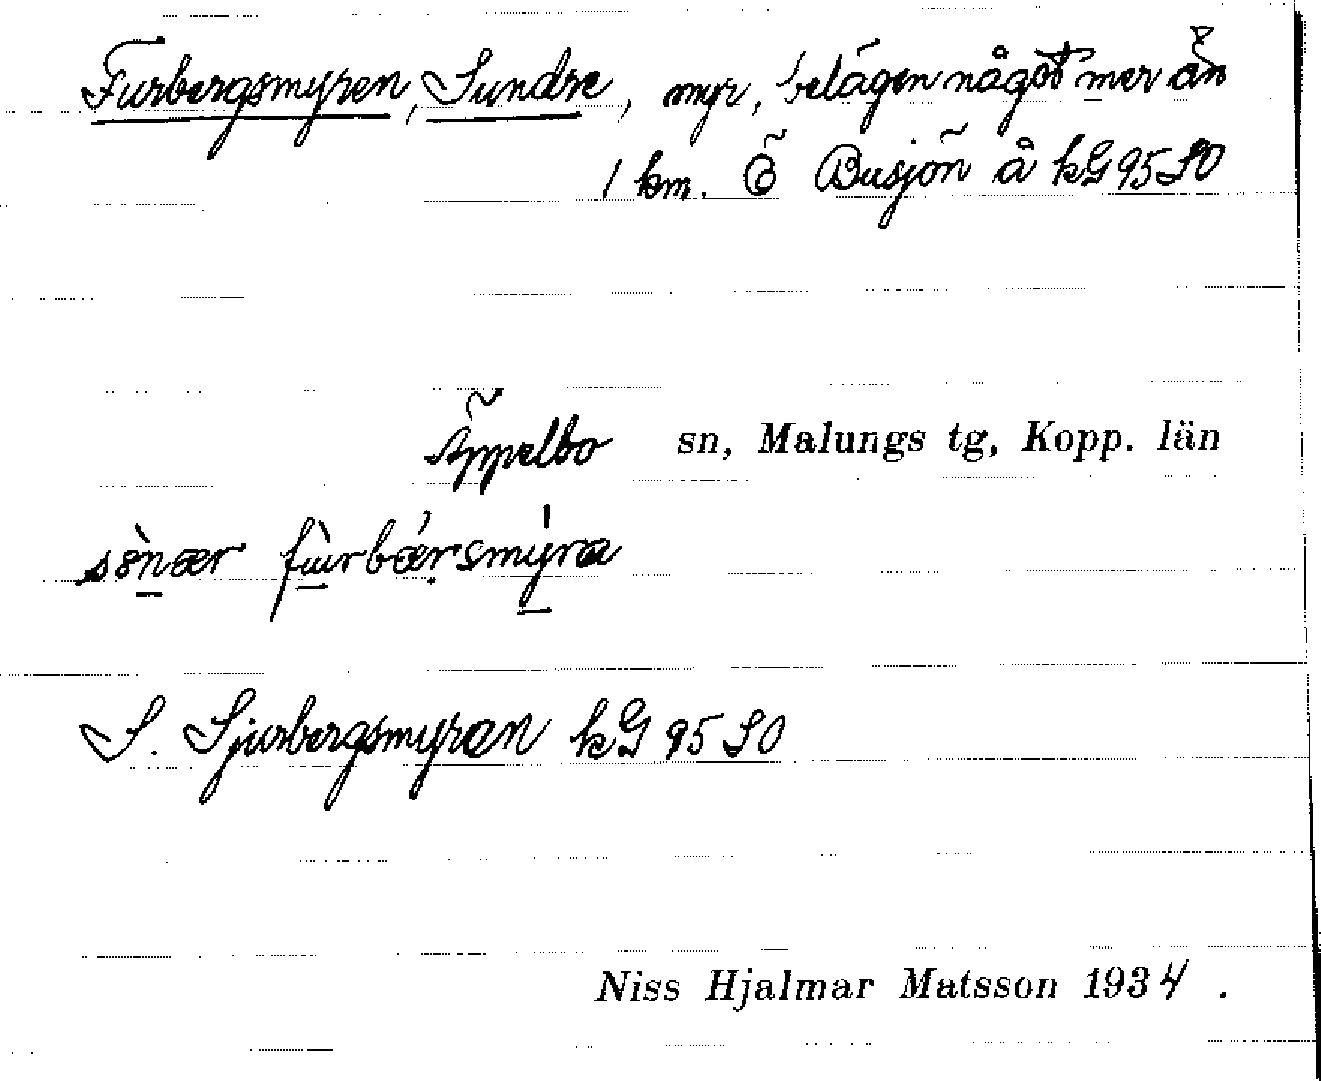 Furbergsmyren, Sundre, myr, belägen något mer än
1 km. Ö Busjön å kG 95 SO
Äppelbo sn, Malungs tg, Kopp. län
sö̀nær fùrbǽrsmýra
S. Sjurbergsmyran kG 95 SO
Niss Hjalmar Matsson 1934.